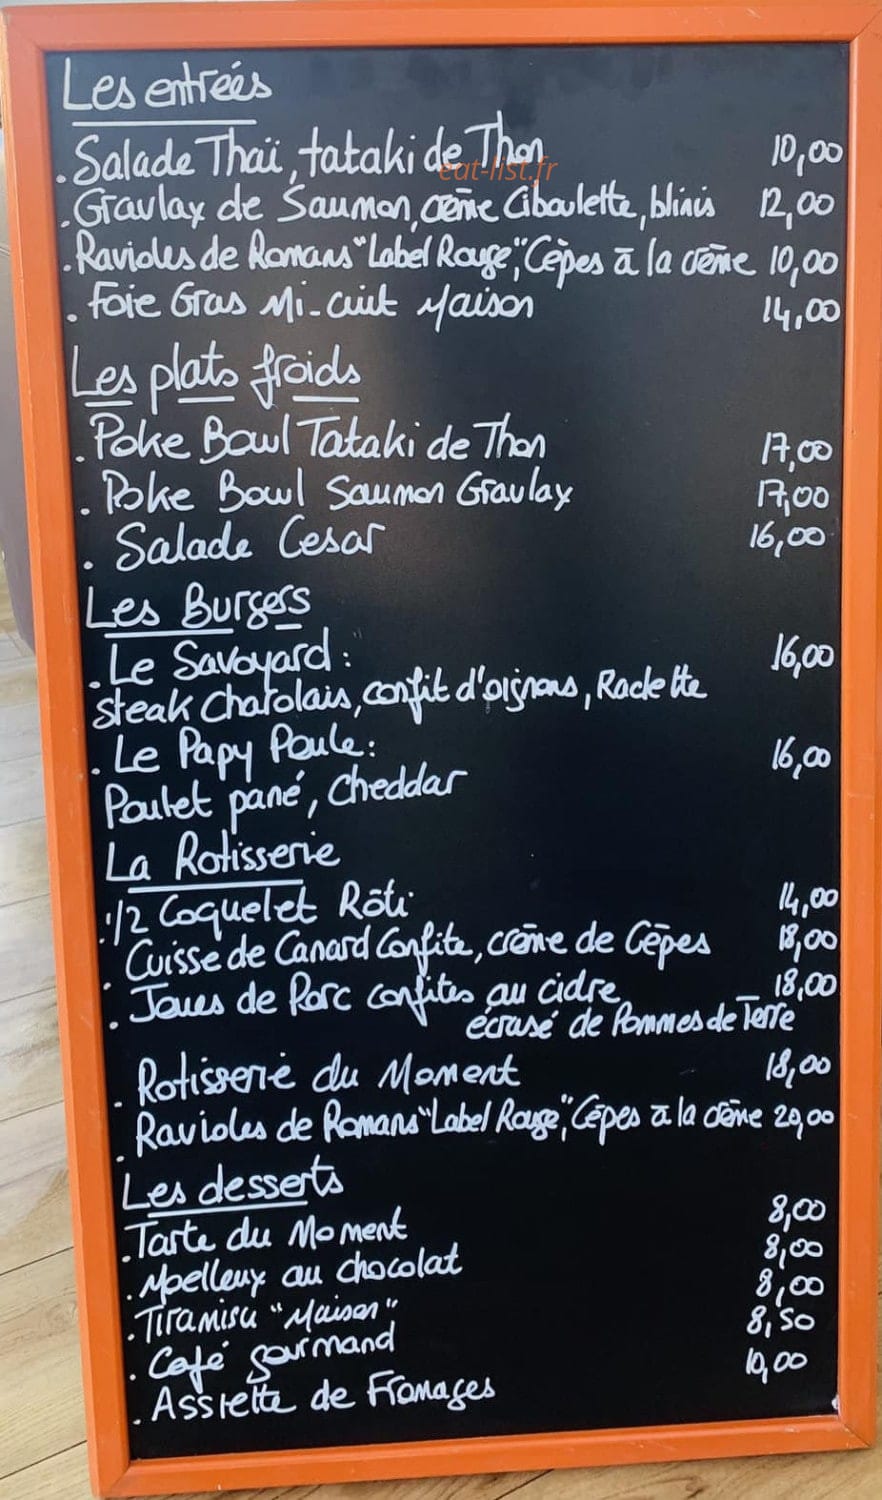 Les entrées
. Salade Thaï, tataki de Thon 10,00
eat-list.fr
. Gravlax de Saumon, crème Ciboulette, blinis 12,00
. Ravioles de Romans "Label Rouge", Cèpes à la crème 10,00
. Foie Gras Mi-cuit Maison 14,00
Les plats froids
. Poke Bowl Tataki de Thon 17,00
. Poke Bowl Saumon Gravlax 17,00
. Salade Cesar 16,00
Les Burgers
. Le Savoyard : 16,00
Steak Charolais, confit d'oignons, Raclette
. Le Papy Poule : 16,00
Poulet pané, Cheddar
La Rotisserie
. 1/2 Coquelet Rôti 14,00
. Cuisse de Canard Confite, crème de Cèpes 18,00
. Joues de Porc confites au cidre 18,00
écrasé de Pommes de Terre
. Rotisserie du Moment 18,00
. Ravioles de Romans "Label Rouge", Cèpes à la crème 20,00
Les desserts
. Tarte du Moment 8,00
. Moelleux au chocolat 8,00
. Tiramisu "Maison" 8,00
. Café gourmand 8,50
. Assiette de Fromages 10,00